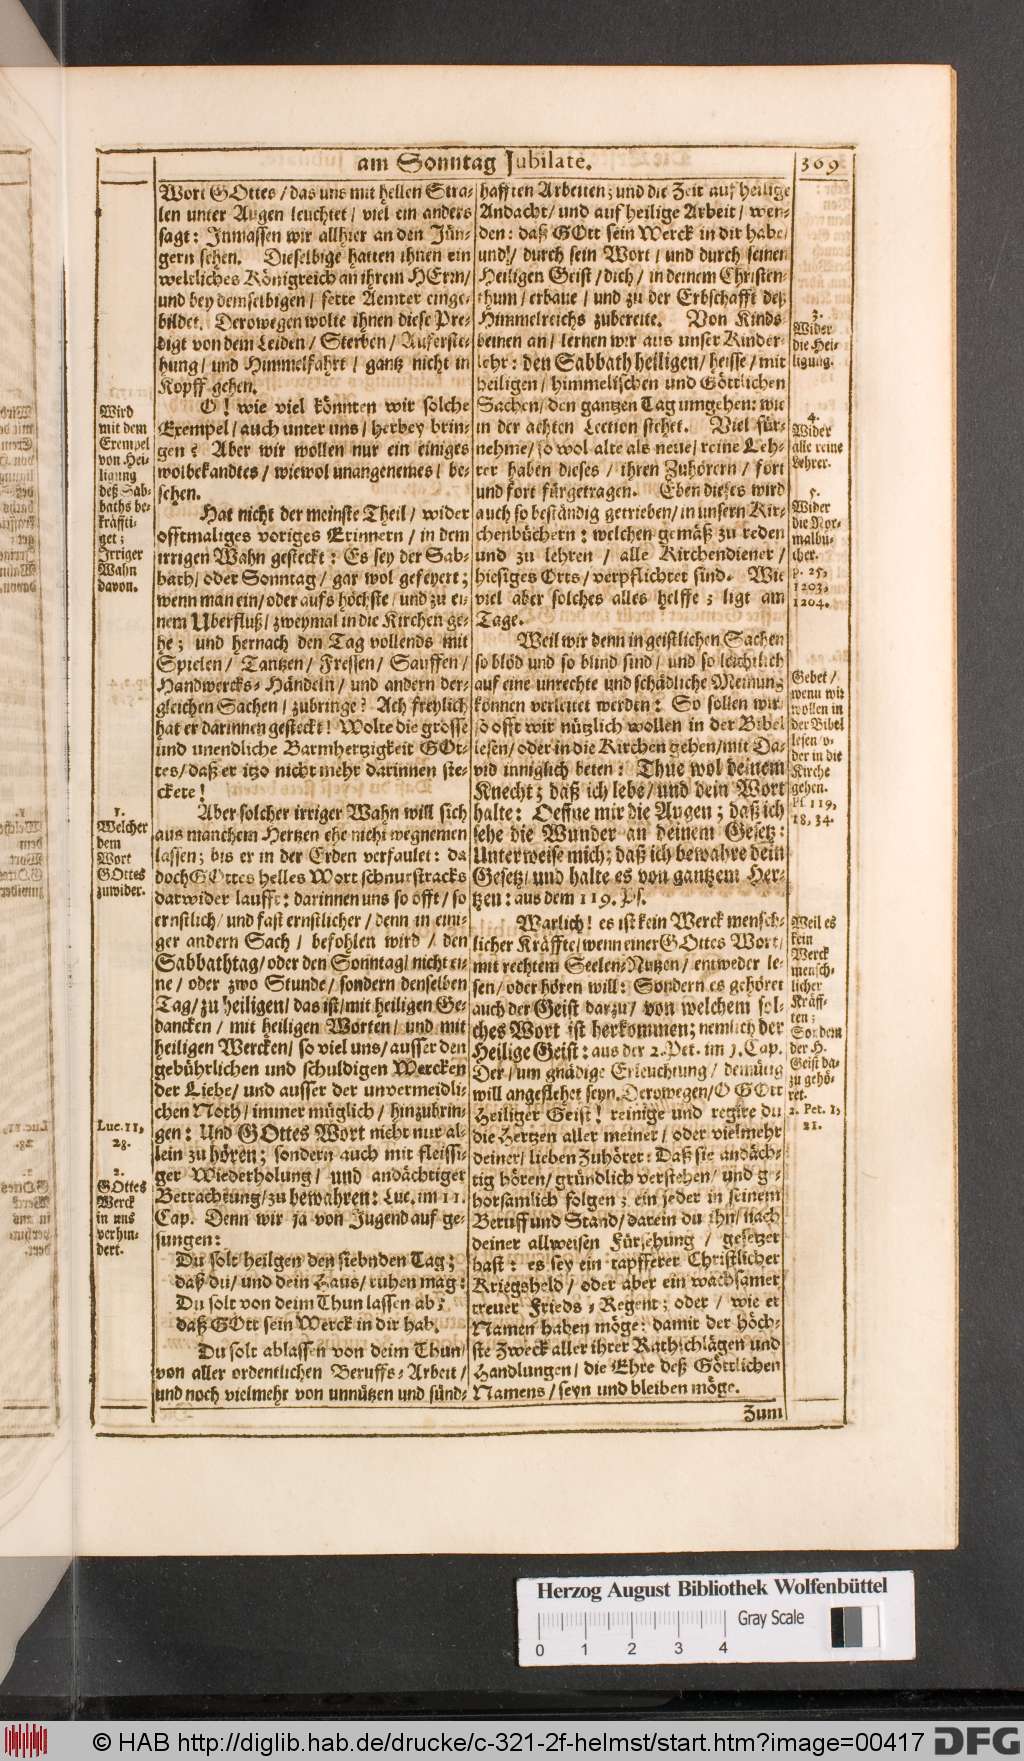 am Sonntag Jubilate.
369
Wort GOttes / das uns mit hellen Stra-
len unter Augen leuchtet / viel ein anders
sagt: Inmassen wir allhier an den Jün-
gern sehen. Dieselbige hatten ihnen ein
weltliches Königreich an ihrem HErrn /
und bey demselbigen / fette Aemter einge-
bildet. Derowegen wolte ihnen diese Pre-
digt von dem Leiden / Sterben / Auferste-
hung / und Himmelfahrt / gantz nicht in
Kopff gehen.
O! wie viel könnten wir solche
Exempel / auch unter uns / herbey brin-
gen? Aber wir wollen nur ein einiges
wolbekandtes / wiewol unangenemes / be-
sehen.
Hat nicht der meinste Theil / wider
offtmaliges voriges Erinnern / in dem
irrigen Wahn gesteckt: Es sey der Sab-
bath / oder Sonntag / gar wol gefeyert;
wenn man ein / oder aufs höchste / und zu ei-
nem Uberfluß / zweymal in die Kirchen ge-
he; und hernach den Tag vollends mit
Spielen / Tantzen / Fressen / Sauffen /
Handwercks-Händeln / und andern der-
gleichen Sachen / zubringe? Ach freylich
hat er darinnen gesteckt! Wolte die grosse
und unendliche Barmhertzigkeit GOt-
tes / daß er itzo nicht mehr darinnen ste-
ckete!
Aber solcher irriger Wahn will sich
aus manchem Hertzen ehe nicht wegnemen
lassen; bis er in der Erden verfaulet: da
doch GOttes helles Wort schnurstracks
darwider laufft: darinnen uns so offt / so
ernstlich / und fast ernstlicher / denn in eini-
ger andern Sach / befohlen wird / den
Sabbathtag / oder den Sonntag / nicht ei-
ne / oder zwo Stunde / sondern denselben
Tag / zu heiligen / das ist / mit heiligen Ge-
dancken / mit heiligen Worten / und mit
heiligen Wercken / so viel uns / ausser den
gebührlichen und schuldigen Wercken
der Liebe / und ausser der unvermeidli-
chen Noth / immer müglich / hinzubrin-
gen: Und GOttes Wort nicht nur al-
lein zu hören; sondern auch mit fleissi-
ger Wiederholung / und andächtiger
Betrachtung / zu bewahren: Luc. im 11.
Cap. Denn wir ja von Jugend auf ge-
sungen:
Du solt heilgen den siebnden Tag;
daß du / und dein Haus / ruhen mag:
Du solt von deim Thun lassen ab;
daß GOtt sein Werck in dir hab.
Du solt ablassen von deim Thun /
von aller ordentlichen Beruffs-Arbeit /
und noch vielmehr von unnützen und sünd-
Wird
mit dem
Exempel
von Hei-
ligung
deß Sab-
baths be-
kräffti-
get;
Irriger
Wahn
davon.
1.
Welcher
dem
Wort
GOttes
zuwider.
Luc. 11,
28.
2.
GOttes
Werck
in uns
verhin-
dert.
hafften Arbeiten; und die Zeit auf heilige
Andacht / und auf heilige Arbeit / wen-
den: daß GOtt sein Werck in dir habe /
und / durch sein Wort / und durch seinen
Heiligen Geist / dich / in deinem Christen-
thum / erbaue / und zu der Erbschafft deß
Himmelreichs zubereite. Von Kinds
beinen an / lernen wir aus unser Kinder-
lehr: den Sabbath heiligen / heisse / mit
heiligen / himmelischen und Göttlichen
Sachen / den gantzen Tag umgehen: wie
in der achten Lection stehet. Viel für-
nehme / so wol alte als neue / reine Leh-
rer haben dieses / ihren Zuhörern / fort
und fort fürgetragen. Eben dieses wird
auch so beständig getrieben / in unsern Kir-
chenbüchern: welchen gemäß zu reden
und zu lehren / alle Kirchendiener /
hiesiges Orts / verpflichtet sind. Wie
viel aber solches alles helffe; ligt am
Tage.
Weil wir denn in geistlichen Sachen
so blöd und so blind sind / und so leichtlich
auf eine unrechte und schädliche Meinung
können verleitet werden: So sollen wir /
so offt wir nützlich wollen in der Bibel
lesen / oder in die Kirchen gehen / mit Da-
vid inniglich beten: Thue wol deinem
Knecht; daß ich lebe / und dein Wort
halte: Oeffne mir die Augen; daß ich
sehe die Wunder an deinem Gesetz:
Unterweise mich; daß ich bewahre dein
Gesetz / und halte es von gantzem Her-
tzen: aus dem 119. Ps.
Warlich! es ist kein Werck mensch-
licher Kräffte / wenn einer GOttes Wort /
mit rechtem Seelen-Nutzen / entweder le-
sen / oder hören will: Sondern es gehöret
auch der Geist darzu / von welchem sol-
ches Wort ist herkommen; nemlich der
Heilige Geist: aus der 2. Pet. im 1. Cap.
Der / um gnädige Erleuchtung / demütig
will angeflehet seyn. Derowegen / O GOtt
Heiliger Geist! reinige und regire du
die Hertzen aller meiner / oder vielmehr
deiner / lieben Zuhörer: Daß sie andäch-
tig hören / gründlich verstehen / und ge-
horsamlich folgen; ein jeder in seinem
Beruff und Stand / darein du ihn / nach
deiner allweisen Fürsehung / gesetzet
hast: es sey ein tapfferer Christlicher
Kriegsheld / oder aber ein wachsamer
treuer Frieds-Regent; oder / wie er
Namen haben möge: damit der höch-
ste Zweck aller ihrer Rathschlägen und
Handlungen / die Ehre deß Göttlichen
Namens / seyn und bleiben möge.
Zum
3.
Wider
die Hei-
ligung.
4.
Wider
alle reine
Lehrer.
5.
Wider
die Nor-
malbü-
cher.
p. 25,
1203,
1204.
Gebet /
wenn wir
wollen in
der Bibel
lesen / o-
der in die
Kirche
gehen.
Ps. 119,
18, 34.
Weil es
kein
Werck
mensch-
licher
Kräff-
ten;
Sondern
der H.
Geist da-
zu gehö-
ret.
2. Pet. 1,
21.
Herzog August Bibliothek Wolfenbüttel
Gray Scale
0 1 2 3 4
© HAB http://diglib.hab.de/drucke/c-321-2f-helmst/start.htm?image=00417
DFG